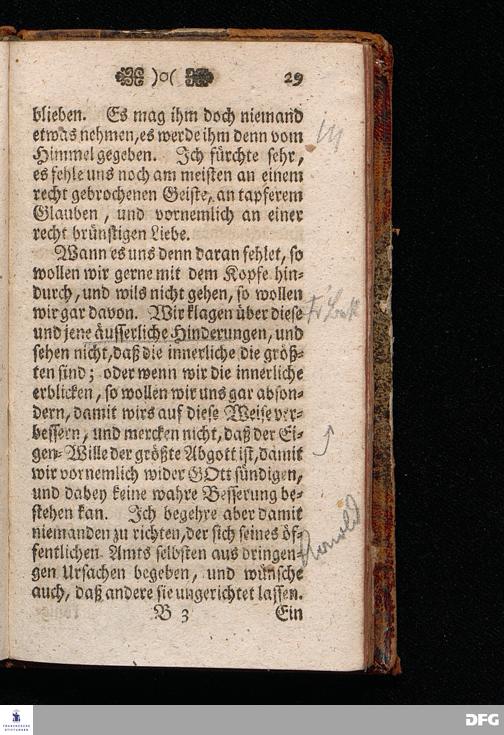 )o( 29
blieben. Es mag ihm doch niemand
etwas nehmen, es werde ihm denn vom
Himmel gegeben. Ich fürchte sehr,
es fehle uns noch am meisten an einem
recht gebrochenen Geiste, an tapferem
Glauben, und vornemlich an einer
recht brünstigen Liebe.
Wann es uns denn daran fehlet, so
wollen wir gerne mit dem Kopfe hin-
durch, und wils nicht gehen, so wollen
wir gar davon. Wir klagen über diese
und jene äusserliche Hinderungen, und
sehen nicht, daß die innerliche die größ-
ten sind; oder wenn wir die innerliche
erblicken, so wollen wir uns gar abson-
dern, damit wirs auf diese Weise ver-
bessern, und mercken nicht, daß der Ei-
gen-Wille der größte Abgott ist, damit
wir vornemlich wider GOtt sündigen,
und dabey keine wahre Besserung be-
stehen kan. Ich begehre aber damit
niemanden zu richten, der sich seines öf-
fentlichen Amts selbsten aus dringen-
gen Ursachen begeben, und wünsche
auch, daß andere sie ungerichtet lassen.
B 3 Ein
Arnold
FRANCKESCHE
STIFTUNGEN
DFG